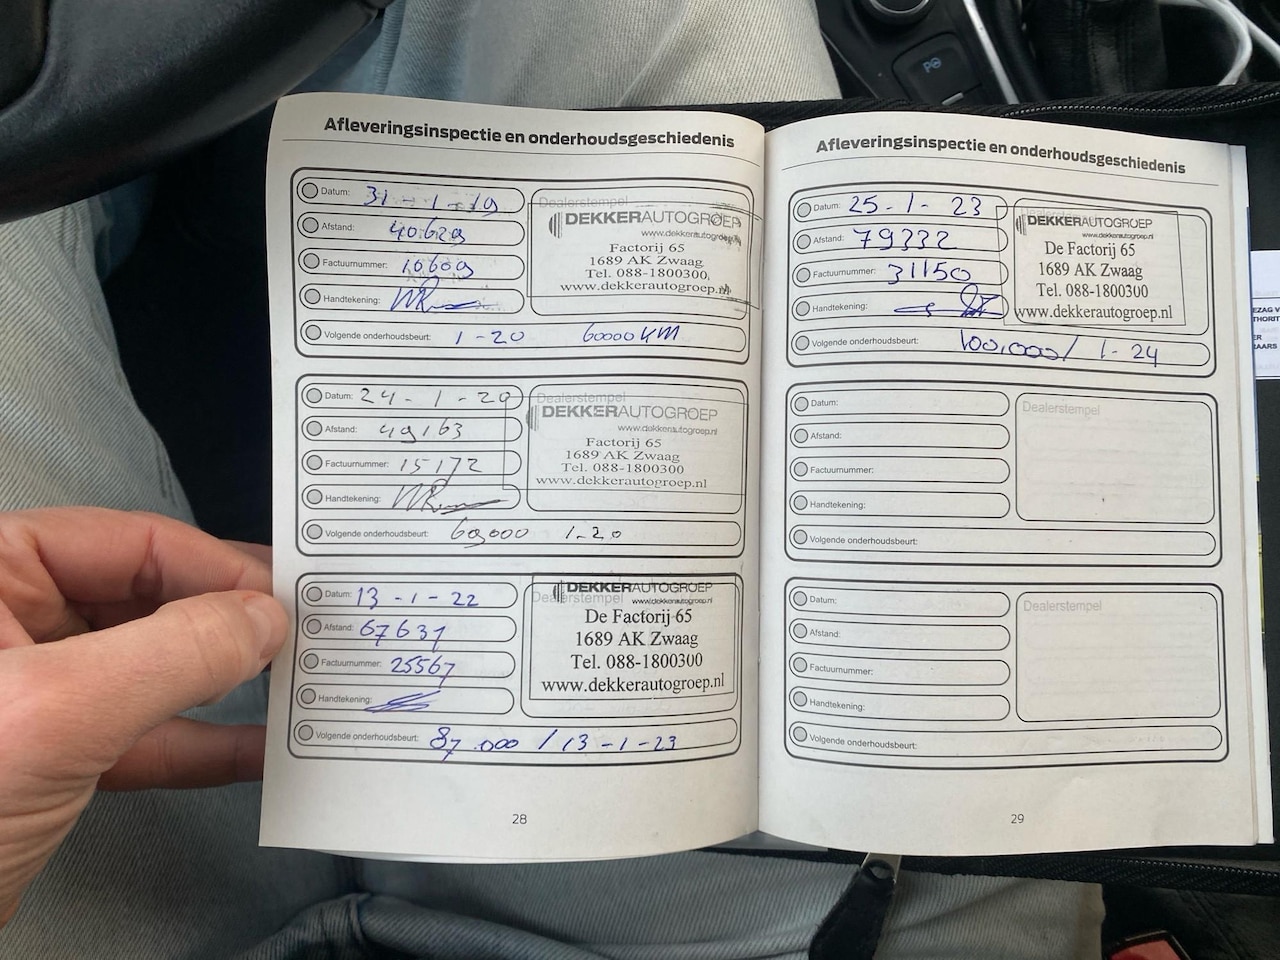 Afleveringsinspectie en onderhoudsgeschiedenis
Datum: 31-1-19
Afstand: 40629
Factuurnummer: 10609
Handtekening:
Volgende onderhoudsbeurt: 1-20 60000 KM
Dealerstempel
DEKKERAUTOGROEP
www.dekkerautogroep.nl
Factorij 65
1689 AK Zwaag
Tel. 088-1800300,
www.dekkerautogroep.nl
Datum: 24-1-20
Afstand: 49163
Factuurnummer: 15172
Handtekening:
Volgende onderhoudsbeurt: 60,000 1-20
Dealerstempel
DEKKERAUTOGROEP
www.dekkerautogroep.nl
Factorij 65
1689 AK Zwaag
Tel. 088-1800300
www.dekkerautogroep.nl
Datum: 13-1-22
Afstand: 67631
Factuurnummer: 25567
Handtekening:
Volgende onderhoudsbeurt: 87.000 / 13-1-23
Dealerstempel
DEKKERAUTOGROEP
www.dekkerautogroep.nl
De Factorij 65
1689 AK Zwaag
Tel. 088-1800300
www.dekkerautogroep.nl
28
Afleveringsinspectie en onderhoudsgeschiedenis
Datum: 25-1-23
Afstand: 79332
Factuurnummer: 31150
Handtekening:
Volgende onderhoudsbeurt: 100.000/ 1-24
DEKKERAUTOGROEP
www.dekkerautogroep.nl
De Factorij 65
1689 AK Zwaag
Tel. 088-1800300
www.dekkerautogroep.nl
Datum:
Afstand:
Factuurnummer:
Handtekening:
Volgende onderhoudsbeurt:
Dealerstempel
Datum:
Afstand:
Factuurnummer:
Handtekening:
Volgende onderhoudsbeurt:
Dealerstempel
29